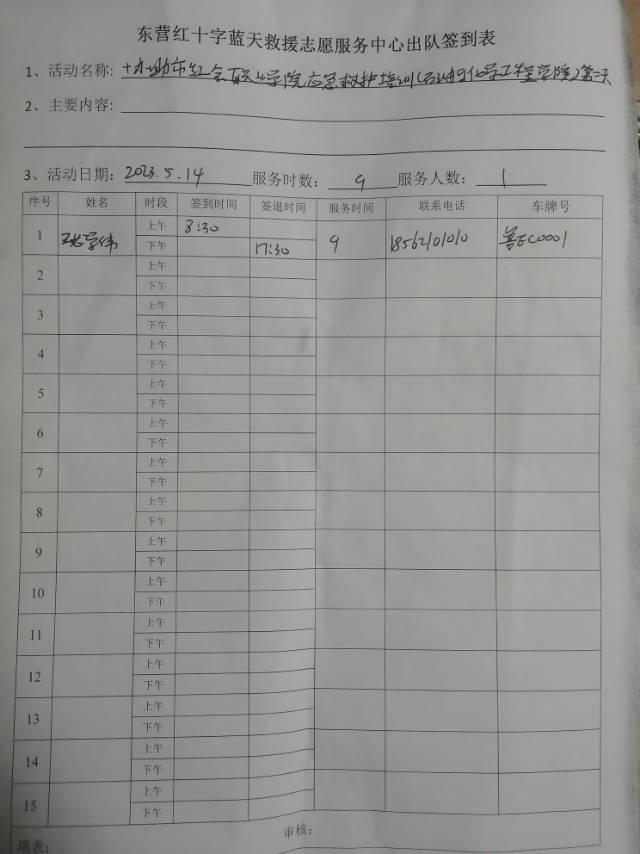 东营红十字蓝天救援志愿服务中心出队签到表
1、活动名称: 协助市红会职业学院应急救护培训(石油化学工程学院)第一天
2、主要内容:
3、活动日期: 2023.5.14 服务时数: 9 服务人数: 1
序号 姓名 时段 签到时间 签退时间 服务时间 联系电话 车牌号
1 上午 8:30
下午 17:30 9 18562101010 鲁EC0001
2 上午
下午
3 上午
下午
4 上午
下午
5 上午
下午
6 上午
下午
7 上午
下午
8 上午
下午
9 上午
下午
10 上午
下午
11 上午
下午
12 上午
下午
13 上午
下午
14 上午
下午
15 上午
下午
填表: 审核: